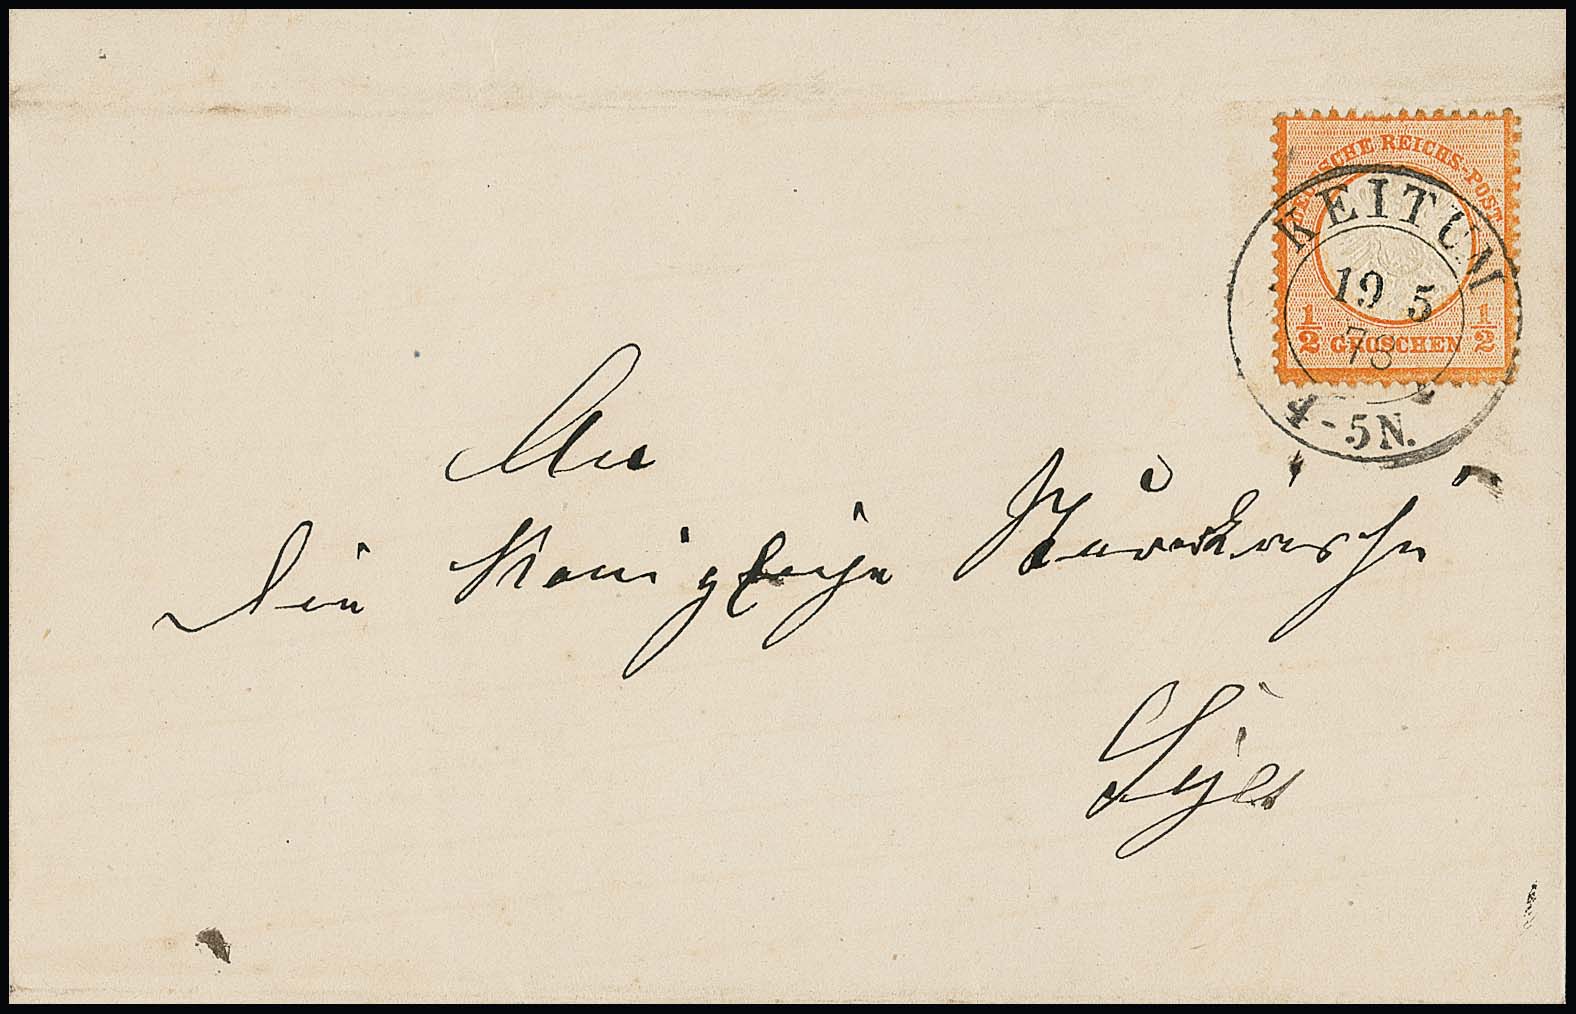 DEUTSCHE REICHS-POST
1/2 GROSCHEN 1/2
KEITUM
19 5
78
4-5N.
An
die Königliche